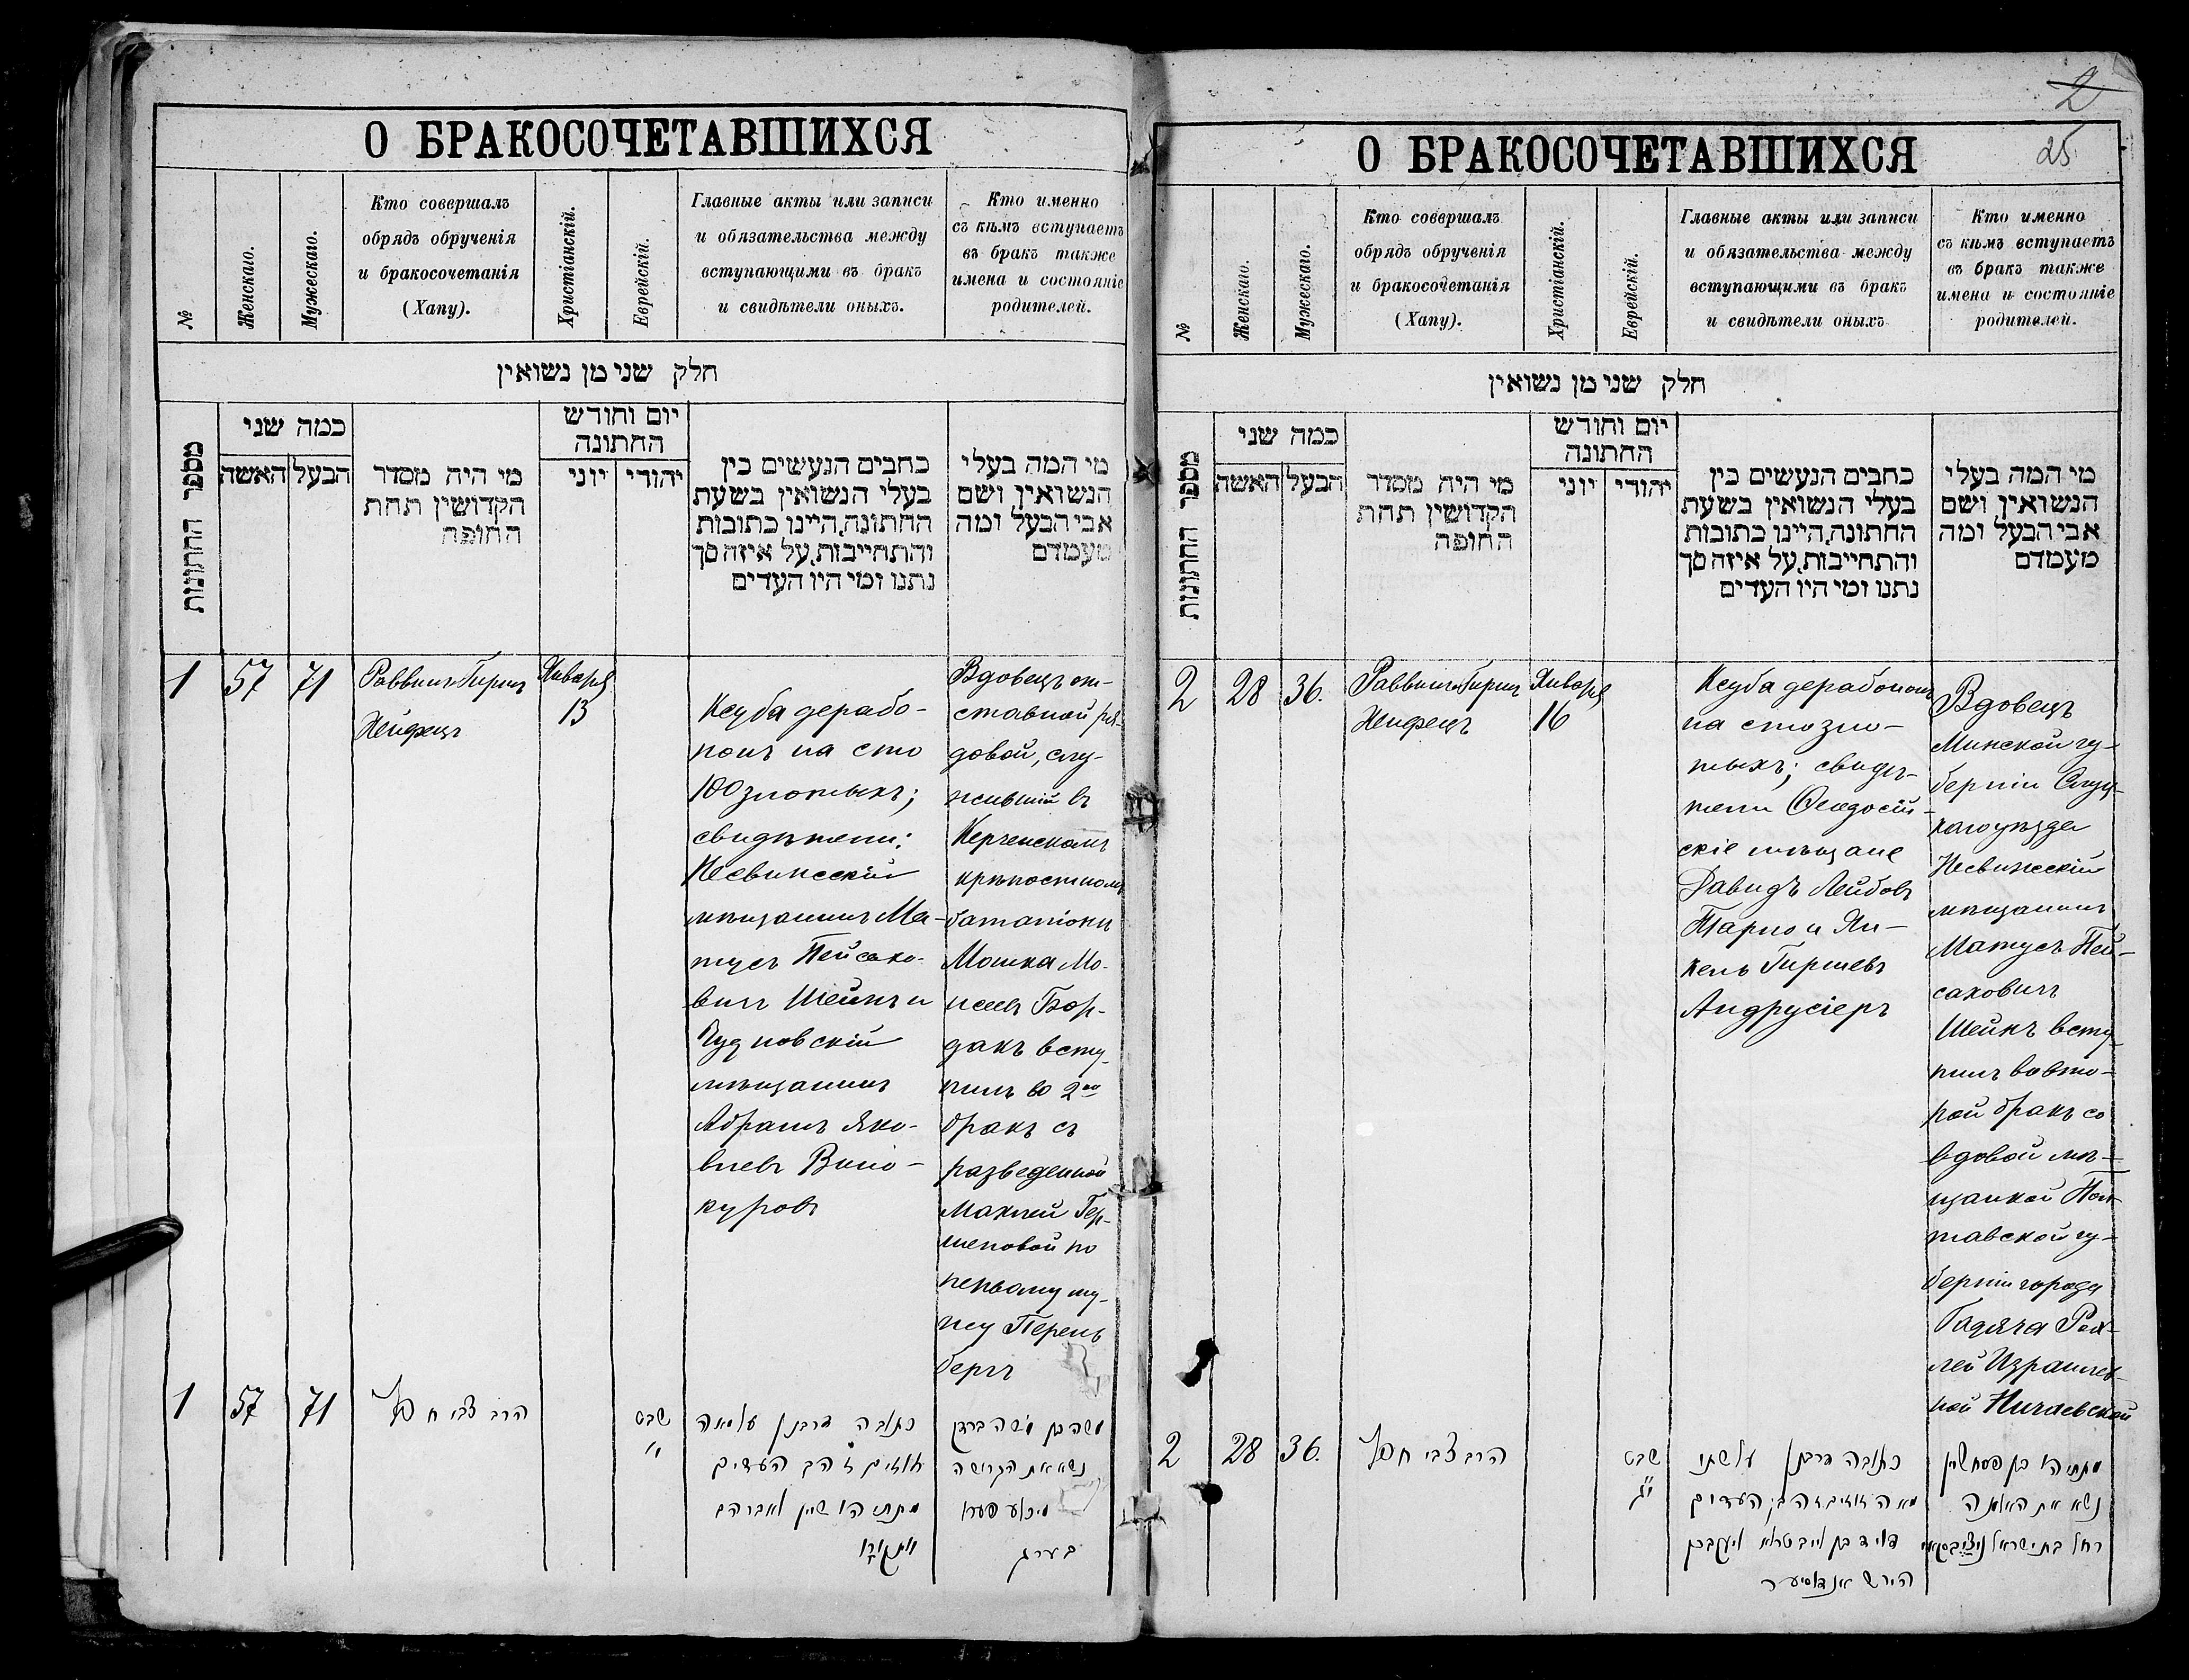 О БРАКОСОЧЕТАВШИХСЯ
№
Женскаго.
Мужескаго.
Кто совершалъ
обрядъ обрученія
и бракосочетанія
(Хапу).
Христіанскій.
Еврейскій.
Главные акты или записи
и обязательства между
вступающими въ бракъ
и свидѣтели оныхъ.
Кто именно
съ кѣмъ вступаетъ
въ бракъ также
имена и состояніе
родителей.
חלק שני מן נשואין
מספר החתונות
כמה שני
האשה
הבעל
מי היה מסדר
הקדושין תחת
החופה
יום וחודש
החתונה
יוני
יהודי
כתבים הנעשים בין
בעלי הנשואין בשעת
החתונה, היינו כתובות
והתחייבות, על איזה סך
נתנו ומי היו העדים
מי המה בעלי
הנשואין ושם
אבי הבעל ומה
מעמדם
1
57
71
Раввинъ Гиршъ
Хейфецъ
Января
13
Ксуба дерабо-
нонъ на сто
100 злотыхъ;
свидѣтели:
Несвижскій
мѣщанинъ Ма-
тусъ Пейсахо-
вичъ Шейнъ и
Чудновскій
мѣщанинъ
Абрамъ Яко-
влевъ Вино-
куровъ
Вдовецъ от-
ставной ря-
довой, слу-
жившій въ
Керченскомъ
крѣпостномъ
баталіонѣ
Мошка Мо-
исеевъ Бор-
дакъ всту-
пилъ во 2ой
бракъ съ
разведенной
Махлей Гер-
шеновой по
первому му-
жу Перель
бергъ
1
57
71
הרב צבי חפץ
שבט
כתובה דרבנן על מאה
זהב העדים
מתתיהו שיין אברהם
משה בן משה ברדק
נשא את הגרושה
בערג
2
25
О БРАКОСОЧЕТАВШИХСЯ
№
Женскаго.
Мужескаго.
Кто совершалъ
обрядъ обрученія
и бракосочетанія
(Хапу).
Христіанскій.
Еврейскій.
Главные акты или записи
и обязательства между
вступающими въ бракъ
и свидѣтели оныхъ
Кто именно
съ кѣмъ вступаетъ
въ бракъ также
имена и состояніе
родителей.
חלק שני מן נשואין
מספר החתונות
כמה שני
האשה
הבעל
מי היה מסדר
הקדושין תחת
החופה
יום וחודש
החתונה
יוני
יהודי
כתבים הנעשים בין
בעלי הנשואין בשעת
החתונה, היינו כתובות
והתחייבות, על איזה סך
נתנו ומי היו העדים
מי המה בעלי
הנשואין ושם
אבי הבעל ומה
מעמדם
2
28
36.
Раввинъ Гиршъ
Хейфецъ
Января
16
Ксуба дерабононъ
на сто зло-
тыхъ; свидѣ-
тели Ѳеодосій-
скіе мѣщане
Давидъ Лейбовъ
Тарло и Ян-
кель Гиршевъ
Андрусіеръ
Вдовецъ
Минской гу-
берніи Слуц-
каго уѣзда
Несвижскій
мѣщанинъ
Матусъ Пей-
саховичъ
Шейнъ всту-
пилъ во вто-
рой бракъ со
вдовой мѣ-
щанкой Пол-
тавской гу-
берніи города
Гадяча Рох-
лей Израилев-
ной Ничаевской
2
28
36.
הרב צבי חפץ
שבט
יג
כתובה דרבנן על שתי
מאה זהב העדים
דויד בן לייב טרלא ויעקב בן
הירש אנדרוסיער
מתתיהו בן פסח שיין
נשא את האלמנה
רחל בת ישראל